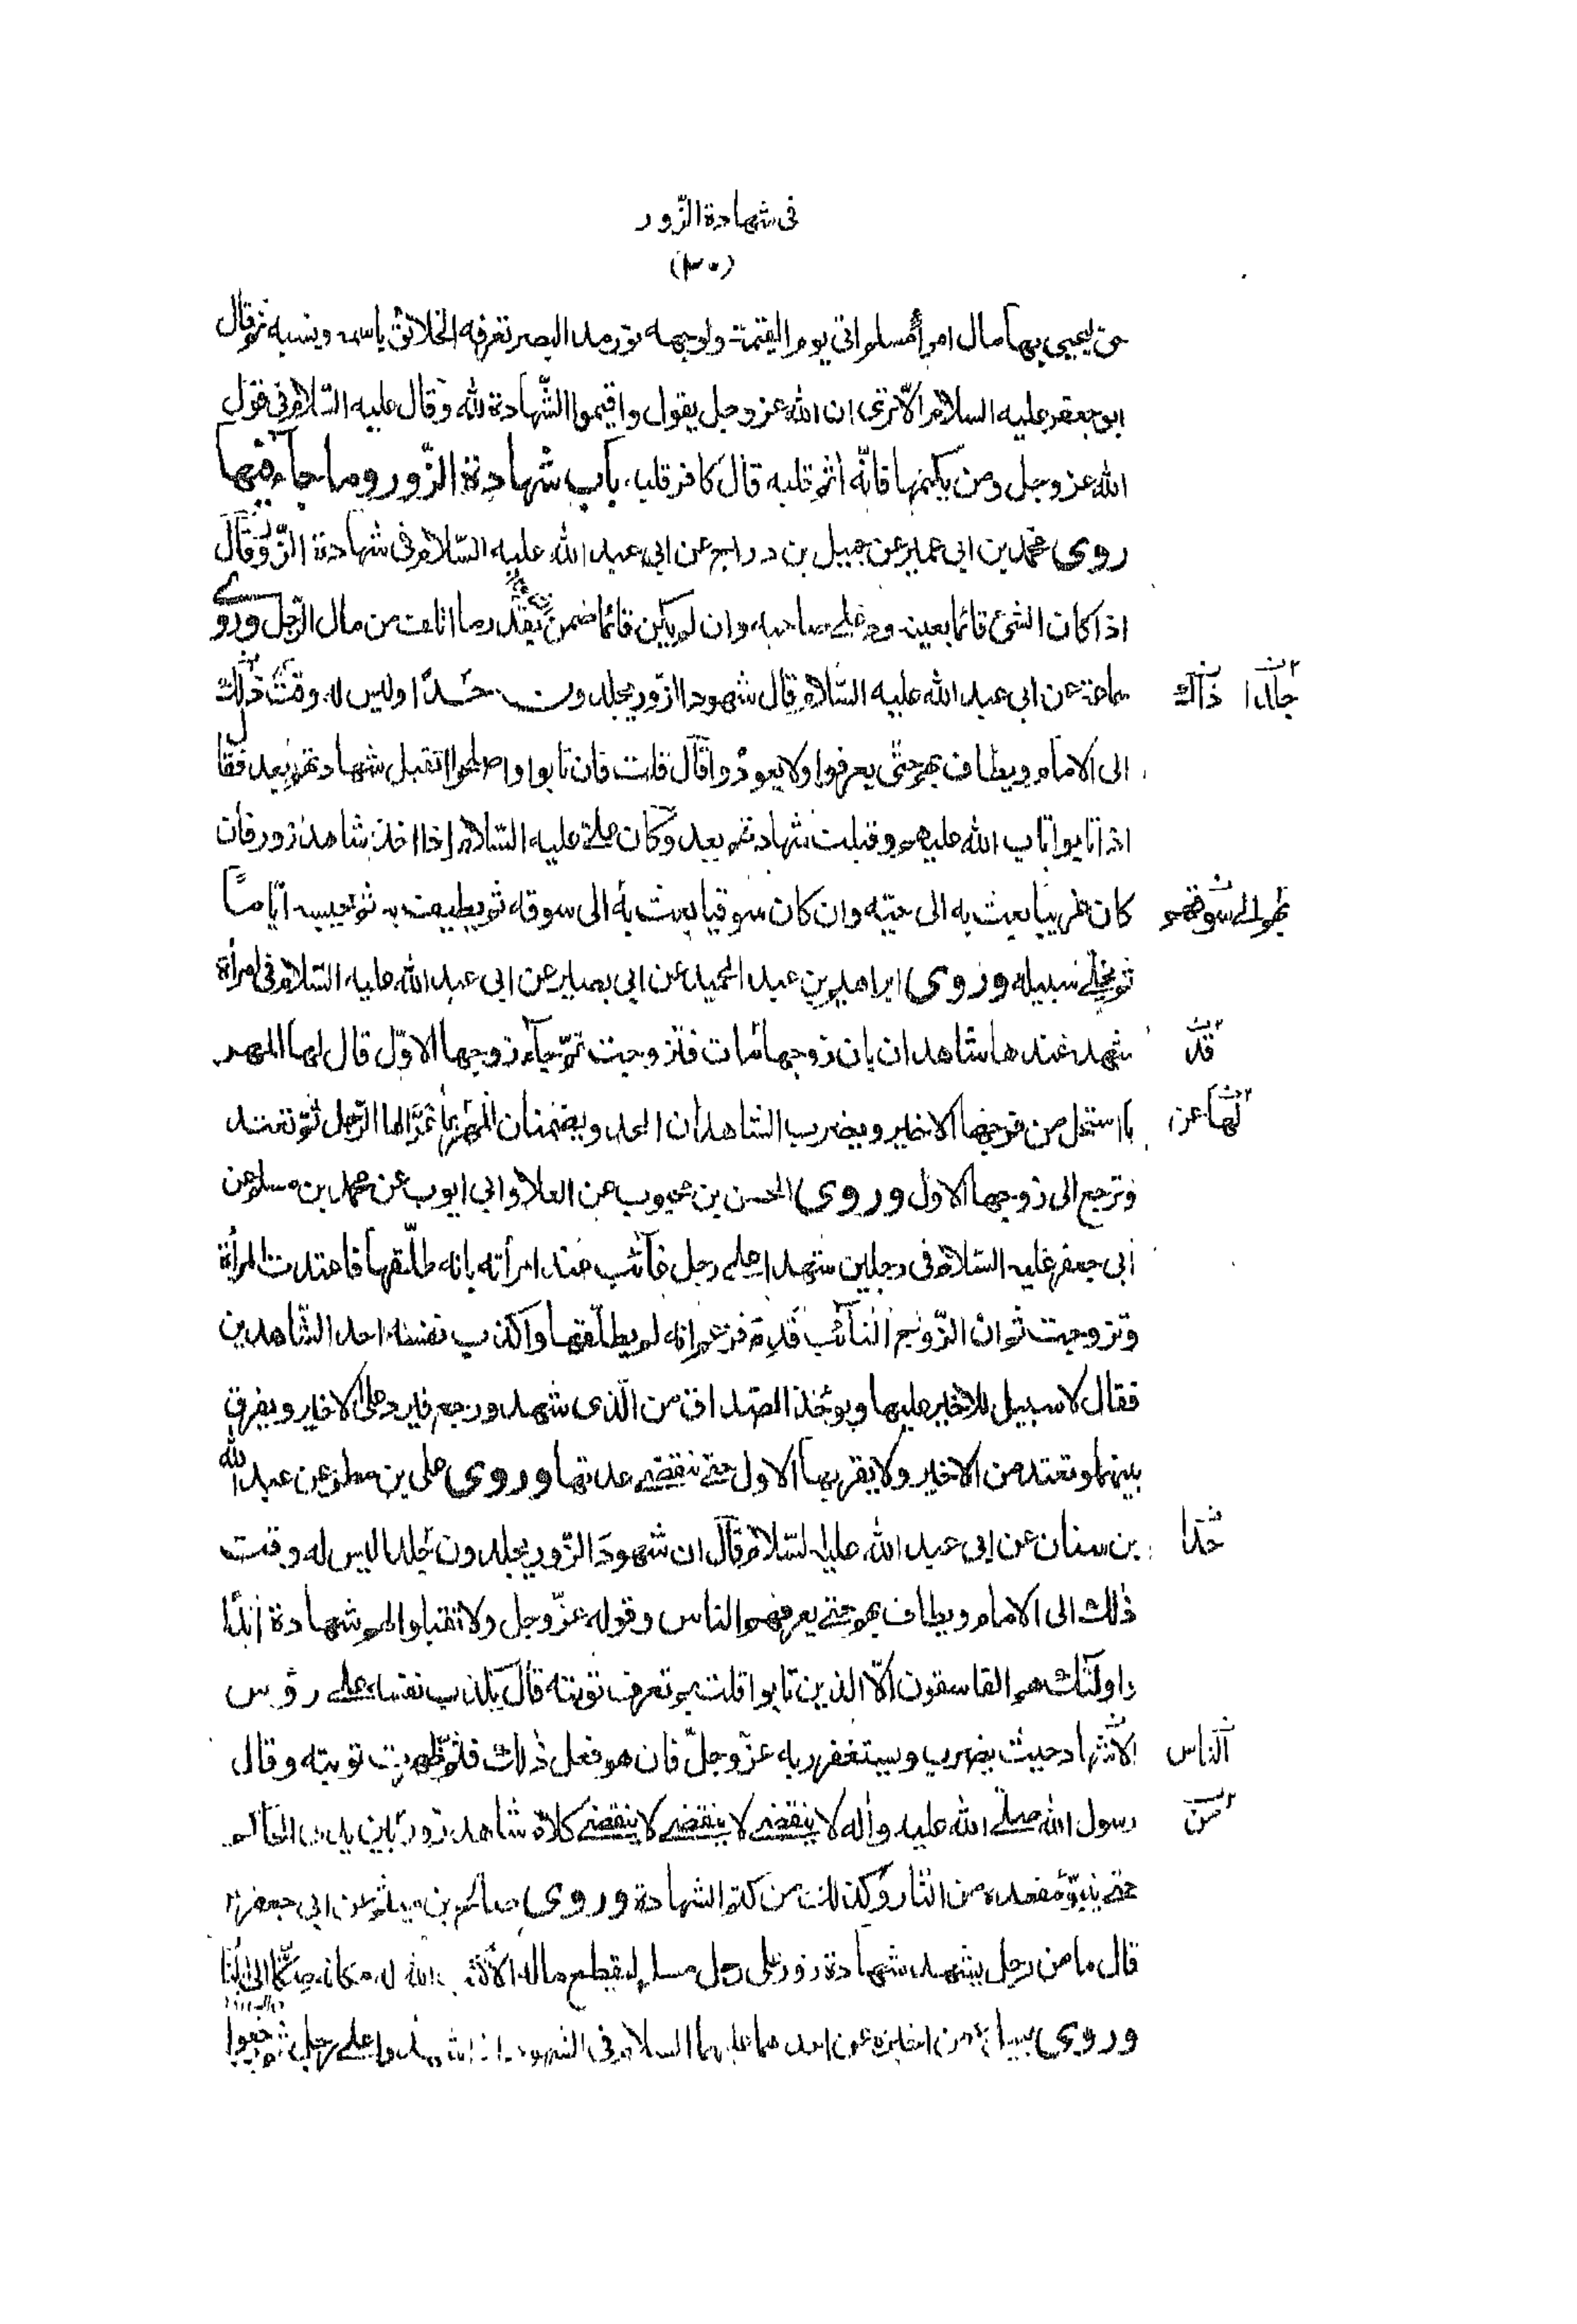 فى شهادة الزّور
(٣٠)
حق ليحيى بها مال امرأ مسلم اتى يوم القيٰمة ولوجهه نور مد البصر تعرفه الخلائق باسمه ونسبه ثم قال
ابو جعفر عليه السلام الّا ترى ان الله عز وجل يقول واقيموا الشّهادة لله وقال عليه السّلام فى قول
الله عز وجل ومن يكتمها فانّه اثم قلبه قال كافر قلبه باب شهادة الزّور وما جاء فيها
روى محمّد بن ابى عمير عن جميل بن دراج عن ابى عبد الله عليه السّلام فى شهادة الزّور قال
اذا كان الشئ قائما بعينه رد على صاحبه وان لم يكن قائما ضمن بقدر ما اتلف من مال الرّجل وروى
سماعة عن ابى عبد الله عليه السّلام قال شهود الزّور يجلدون حدّا وليس له وقت ذلك
جلدا ذلك
الى الامام ويطاف بهم حتّى يعرفوا ولا يعودوا قال قلت فان تابوا واصلحوا تقبل شهادتهم بعد فقال
اذا تابوا تاب الله عليهم وقبلت شهادتهم بعد وكان على عليه السّلام اذا اخذ شاهد زور فان
كان غريبا بعث به الى حيّه وان كان سوقيا بعث به الى سوقه ثم يطيف به ثم يحبسه ايّاما
ثم يخلى سبيله وروى ابراهيم بن عبد الحميد عن ابى بصير عن ابى عبد الله عليه السّلام فى امرأة
شهد عندها شاهدان بان زوجها مات فتزوجت ثمّ جاء زوجها الاوّل قال لها المهر
قد
بما استحل من فرجها الاخير ويضرب الشاهدان الحد ويضمنان المهر بما غرّا لها الرّجل ثمّ تعتد
لها عن
وترجع الى زوجها الاول وروى الحسن بن محبوب عن العلا وابى ايوب عن محمد بن مسلم عن
ابى جعفر عليه السّلام فى رجلين شهدا على رجل غائب عند امرأته بانه طلّقها فاعتدت المرأة
وتزوجت ثم ان الزّوج الغائب قدم فزعم انه لم يطلّقها واكذب نفسه احد الشّاهدين
فقال لا سبيل للاخير عليها ويؤخذ الصّداق من الّذى شهد ورجع فيرد على الاخير ويفرق
بينهما وتعتد من الاخير ولا يقربها الاول حتى تنقضى عدتها وروى على بن مطر عن عبد الله
بن سنان عن ابى عبد الله عليه السّلام قال ان شهود الزّور يجلدون جلدا ليس له وقت
حدا
ذلك الى الامام ويطاف بهم حتى يعرفهم الناس وقوله عزّ وجل ولا تقبلوا لهم شهادة ابدًا
واولٰئك هم الفاسقون الّا الذين تابوا قلت بم تعرف توبته قال يكذب نفسه على رؤس
الاشهاد حيث يضرب ويستغفر ربه عزّ وجلّ فان هو فعل ذلك فثم ظهرت توبته وقال
الناس
رسول الله صلّى الله عليه واله لا ينقضى لا ينقضى لا ينقضى كلام شاهد زور بين يدى الحاكم
من
حتى يتبوّء مقعده من النّار وكذلك من كتم الشهادة وروى صالح بن ميثم عن ابى جعفر
قال ما من رجل يشهد شهادة زور على رجل مسلم ليقطع ماله الّا كتب الله له مكانه صكّا الى النّار
وروى عن اخبره عن احدهما عليهما السلام فى الشهود اذا شهدوا على رجل ثم رجعوا